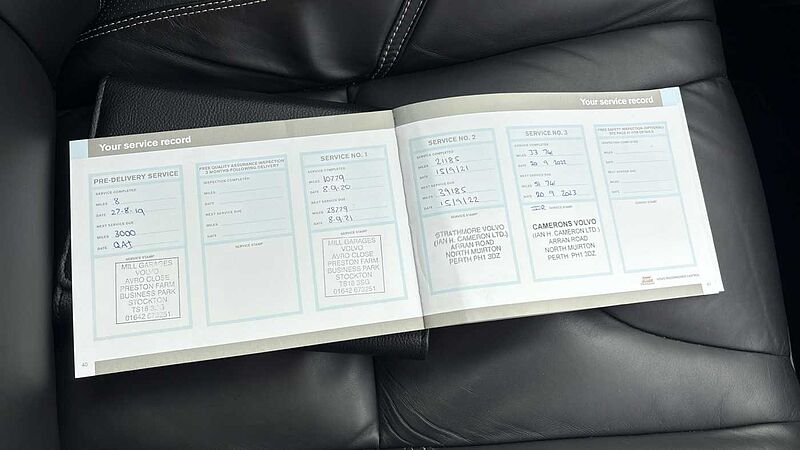 Your service record
PRE-DELIVERY SERVICE
SERVICE COMPLETED
MILES 8
DATE 27-8-19
NEXT SERVICE DUE
MILES 3000
DATE QAI
SERVICE STAMP
MILL GARAGES
VOLVO
AVRO CLOSE
PRESTON FARM
BUSINESS PARK
STOCKTON
TS18 3SG
01642 673251
40
FREE QUALITY ASSURANCE INSPECTION
3 MONTHS FOLLOWING DELIVERY
INSPECTION COMPLETED
MILES
DATE
NEXT SERVICE DUE
MILES
DATE
SERVICE STAMP
SERVICE NO. 1
SERVICE COMPLETED
MILES 10779
DATE 8.9.20
NEXT SERVICE DUE
MILES 28779
DATE 8.9.21
SERVICE STAMP
MILL GARAGES
VOLVO
AVRO CLOSE
PRESTON FARM
BUSINESS PARK
STOCKTON
TS18 3SG
01642 673251
Your service record
SERVICE NO. 2
SERVICE COMPLETED
MILES 21185
DATE 15/9/21
NEXT SERVICE DUE
MILES 39185
DATE 15/9/22
SERVICE STAMP
STRATHMORE VOLVO
(IAN H. CAMERON LTD.)
ARRAN ROAD
NORTH MUIRTON
PERTH PH1 3DZ
SERVICE NO. 3
SERVICE COMPLETED
MILES
DATE 20 9 2022
NEXT SERVICE DUE
MILES
DATE 20 9 2023
SERVICE STAMP
CAMERONS VOLVO
(IAN H. CAMERON LTD.)
ARRAN ROAD
NORTH MUIRTON
PERTH PH1 3DZ
FREE SAFETY INSPECTION (OPTIONAL)
INSPECTION COMPLETED
MILES
DATE
NEXT SERVICE DUE
MILES
DATE
SERVICE STAMP
41